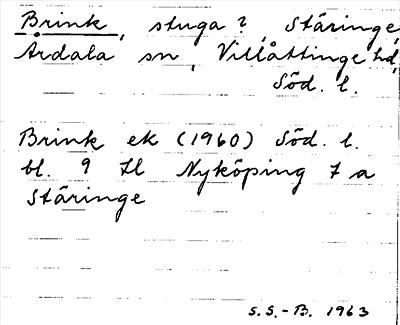 Brink, stuga?, Stäringe,
Årdala sn, Villåttinge hd,
Söd. l.
Brink ek (1960) Söd. l.
bl. 9 Il Nyköping 7 a
Stäringe
S.S.-B. 1963